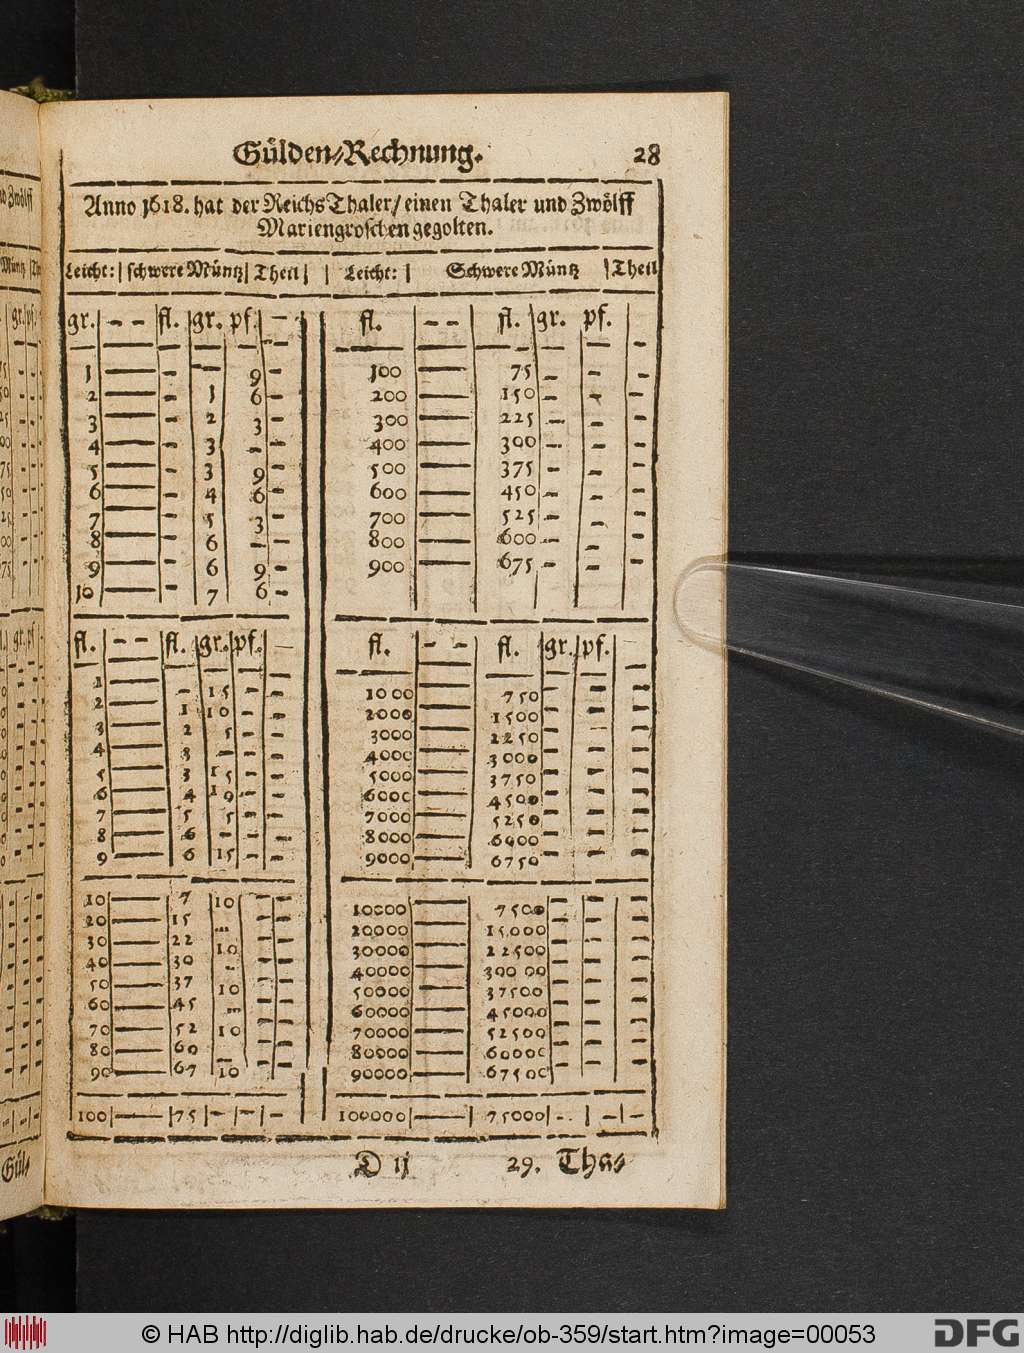 Gülden-Rechnung. 28
Anno 1618. hat der Reichs Thaler/ einen Thaler und Zwölff
Mariengroschen gegolten.
Leicht: schwere Müntz Theil Leicht: Schwere Müntz Theil
gr. - - fl. gr. pf. - fl. - - fl. gr. pf.
1 — - - 9 - 100 — 75 - - -
2 — - 1 6 - 200 — 150 - - -
3 — - 2 3 - 300 — 225 - - -
4 — - 3 - - 400 — 300 - - -
5 — - 3 9 - 500 — 375 - - -
6 — - 4 6 - 600 — 450 - - -
7 — - 5 3 - 700 — 525 - - -
8 — - 6 - - 800 — 600 - - -
9 — - 6 9 - 900 — 675 - - -
10 — - 7 6 -
fl. - - fl. gr. pf. - fl. - - fl. gr. pf.
1 — - 15 - - 1000 — 750 - - -
2 — 1 10 - - 2000 — 1500 - - -
3 — 2 5 - - 3000 — 2250 - - -
4 — 3 - - - 4000 — 3000 - - -
5 — 3 15 - - 5000 — 3750 - - -
6 — 4 10 - - 6000 — 4500 - - -
7 — 5 5 - - 7000 — 5250 - - -
8 — 6 - - - 8000 — 6000 - - -
9 — 6 15 - - 9000 — 6750 - - -
10 — 7 10 - - 10000 — 7500 - - -
20 — 15 - - - 20000 — 15000 - - -
30 — 22 10 - - 30000 — 22500 - - -
40 — 30 - - - 40000 — 30000 - - -
50 — 37 10 - - 50000 — 37500 - - -
60 — 45 - - - 60000 — 45000 - - -
70 — 52 10 - - 70000 — 52500 - - -
80 — 60 - - - 80000 — 60000 - - -
90 — 67 10 - - 90000 — 67500 - - -
100 — 75 - - - 100000 — 75000 - - -
D ij 29. Tha-
Gül-
© HAB http://diglib.hab.de/drucke/ob-359/start.htm?image=00053
DFG